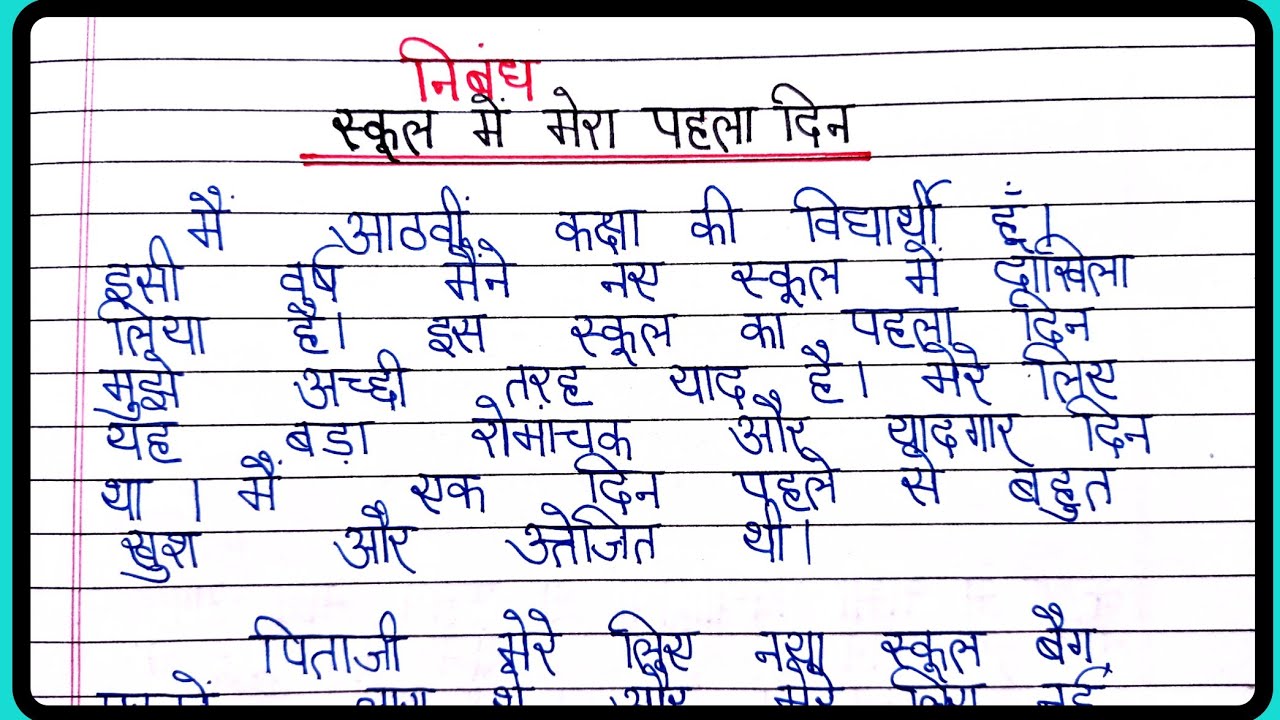 निबंध
स्कूल में मेरा पहला दिन
मैं आठवीं कक्षा की विद्यार्थी हूँ।
इसी वर्ष मैंने नए स्कूल में दाखिला
लिया है। इस स्कूल का पहला दिन
मुझे अच्छी तरह याद है। मेरे लिए
यह बड़ा रोमांचक और यादगार दिन
था। मैं एक दिन पहले से बहुत
खुश और उत्तेजित थी।
पिताजी मेरे लिए नया स्कूल बैग
और मेरे लिए नई